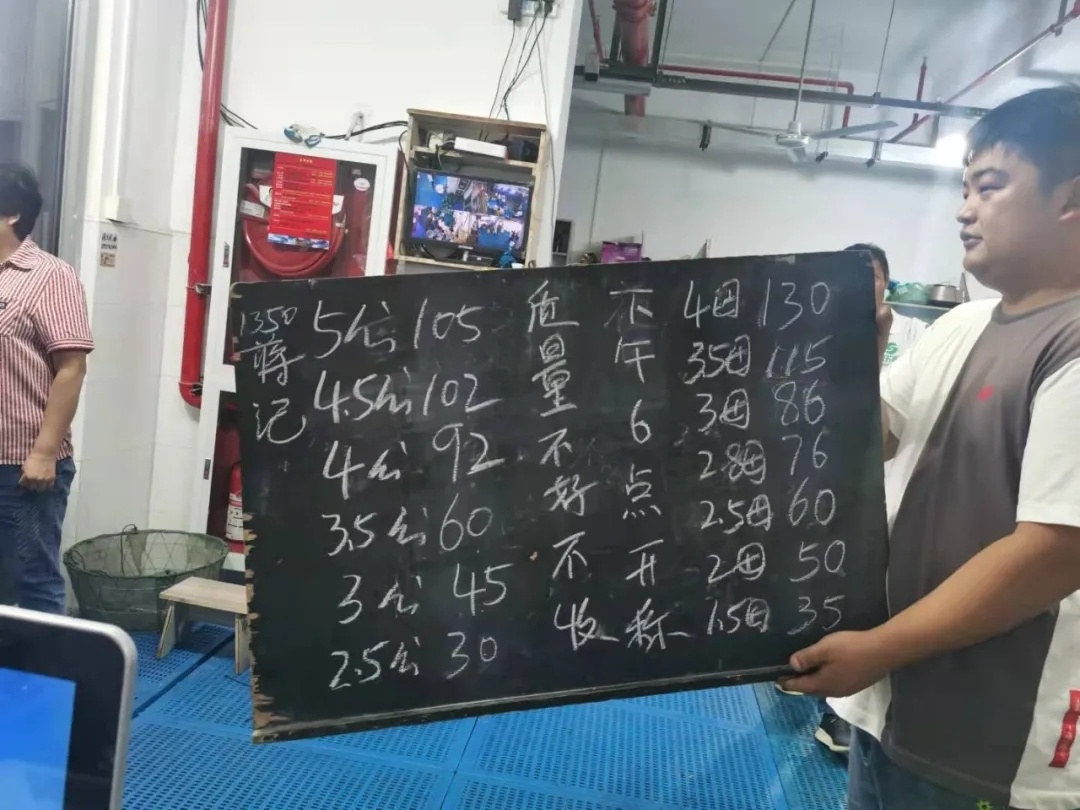 1350
蒋记
5公 105
4.5公 102
4公 92
3.5公 60
3公 45
2.5公 30
质量不好不收
下午6点开称
4母 130
3.5母 115
3母 86
2.8母 76
2.5母 60
2母 50
1.5母 35